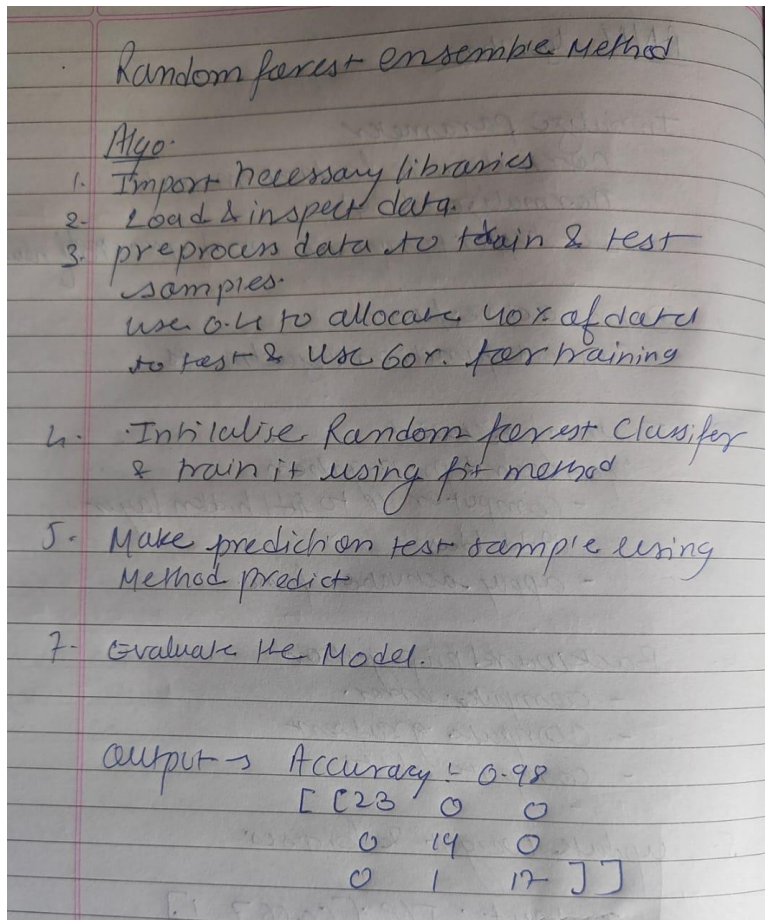 Random forest ensemble Method
Algo.
1. Import necessary libraries
2. Load & inspect data.
3. preprocess data to train & test
samples.
use 0.4 to allocate 40% of data
to test & use 60%. for training
4. Initialise Random forest Classifer
& train it using fit method
5. Make prediction test sample using
Method predict
7. Evaluate the Model.
output → Accuracy :- 0.98
[ [23 0 0
0 19 0
0 1 17 ] ]